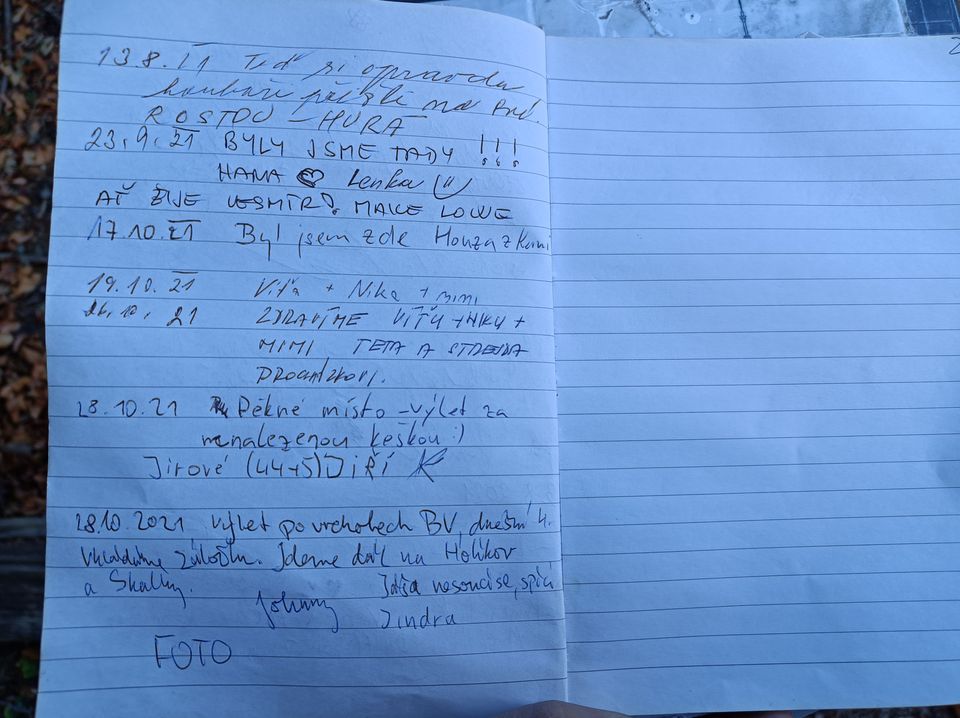 13.8.21 Teď si opravdu
houbaři přišli na
ROSTOU - HURÁ
23.9.21 BYLY JSME TADY !!!
HANA Lenka
AŤ ŽIJE VESMÍR! MAKE LOWE
17.10.21 Byl jsem zde Honza z
19.10.21 Víťa + Nika + mimi
26.10.21 ZDRAVÍME VÍŤU + NIKU +
MIMI TETA A STREJDA
PROCHÁZKOVI.
28.10.21 Pěkné místo - výlet za
nenalezenou keškou :)
Jirové (44+5) JIŘÍ
28.10.2021 výlet po vrcholech BV, dnešní 4.
Jdeme dál na Holíkov
a Skalky. Jáťa nesoucí se, spící
Johnny Jindra
FOTO
2